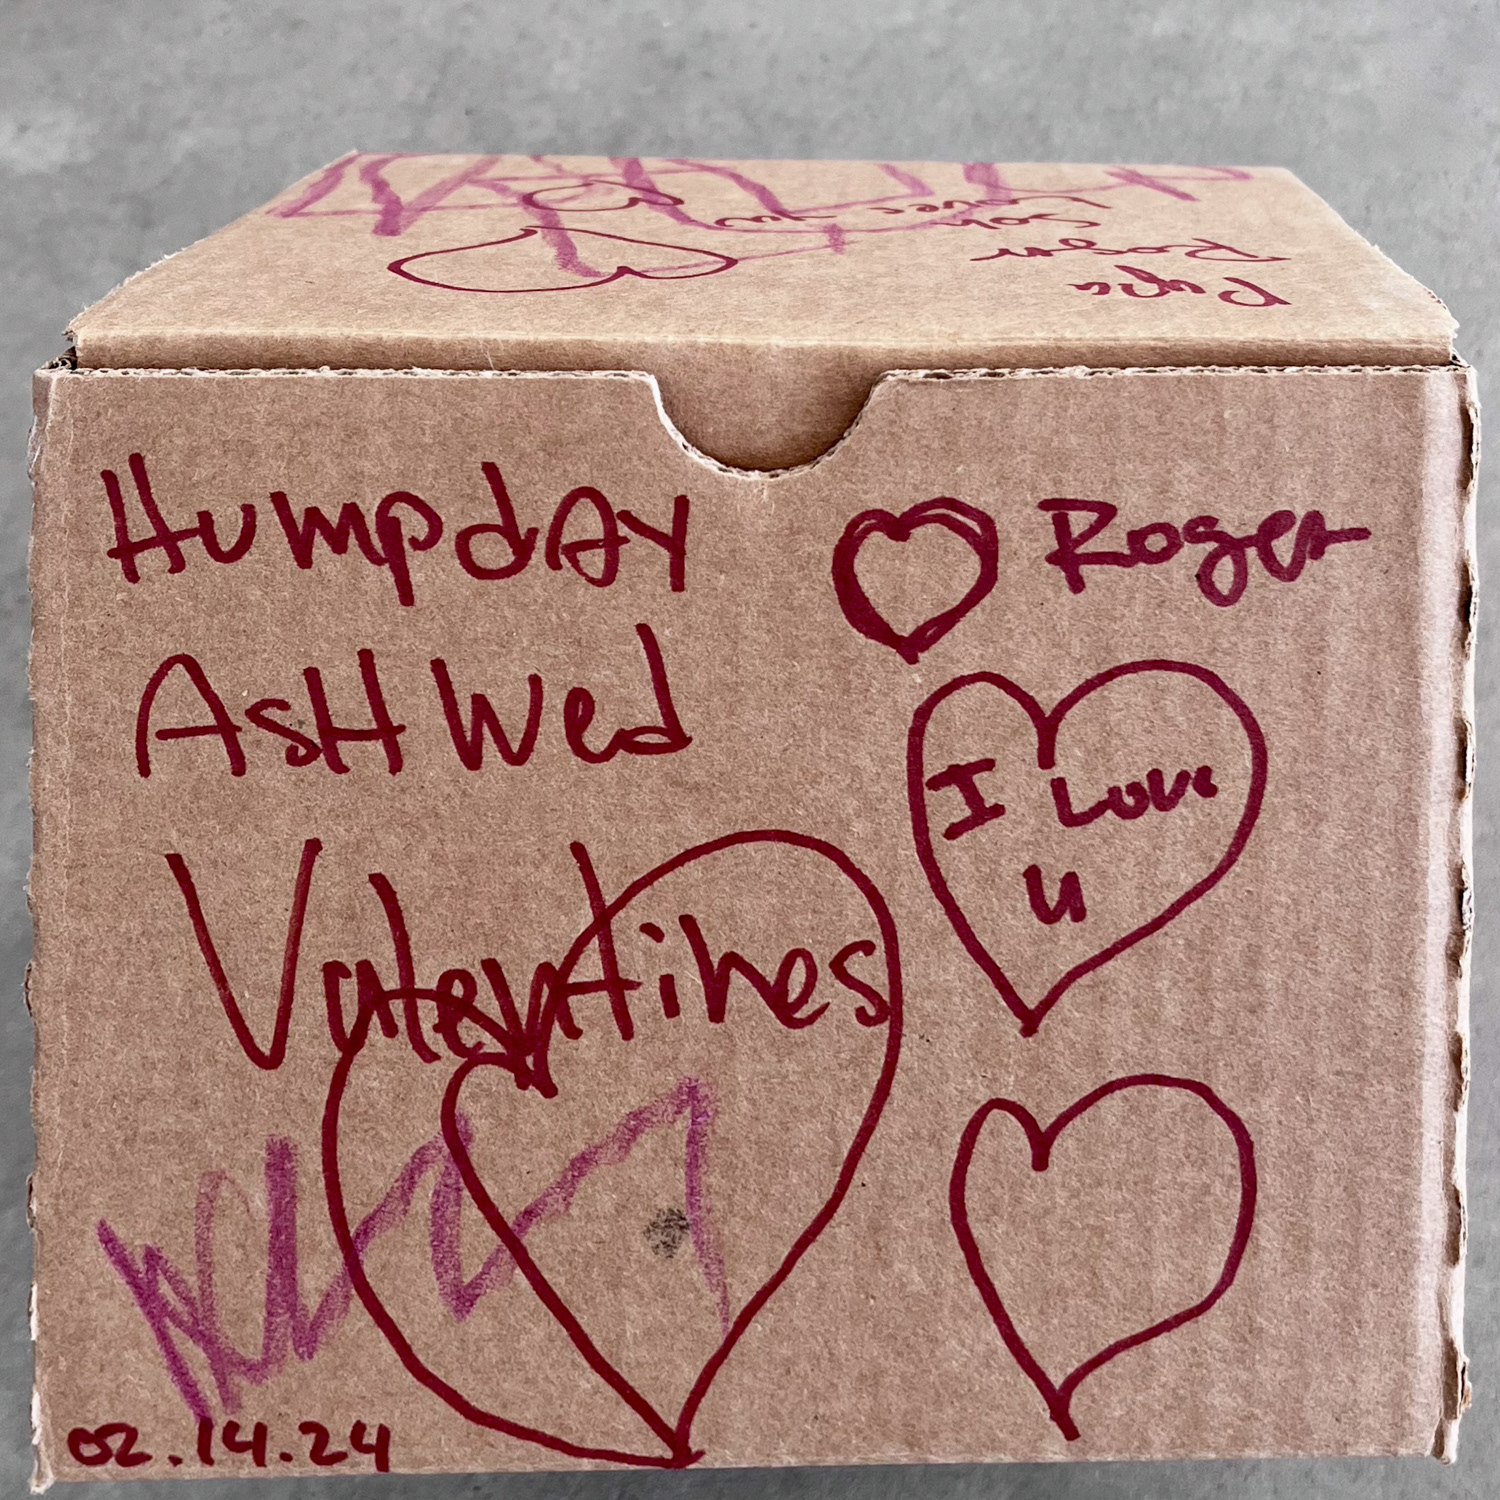 HumpdAy
AsH Wed
Valentines
02.14.24
Roger
I Love
u
Papa
Roger
Soh
Loves you